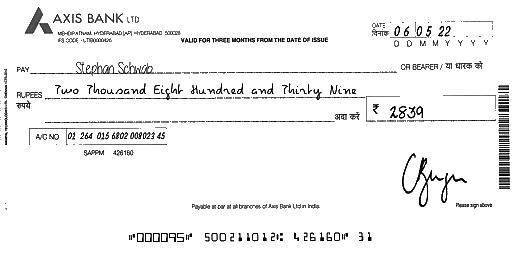 AXIS BANK LTD
MEHDIPATNAM, HYDERABAD [AP] HYDERABAD 500028
IFS CODE : UTIB0000426
VALID FOR THREE MONTHS FROM THE DATE OF ISSUE
DATE
दिनांक 06 05 22
D D M M Y Y Y Y
PAY Stephan Schwab OR BEARER / या धारक को
RUPEES Two Thousand Eight Hundred and Thirty Nine
रुपये अदा करें ₹ 2839
A/C NO 01 264 015 6802 008023 45
SAPPM 426160
Payable at par at all branches of Axis Bank Ltd in India.
Please sign above
⑈000095⑈ 500211012⑆ 426160⑈ 31